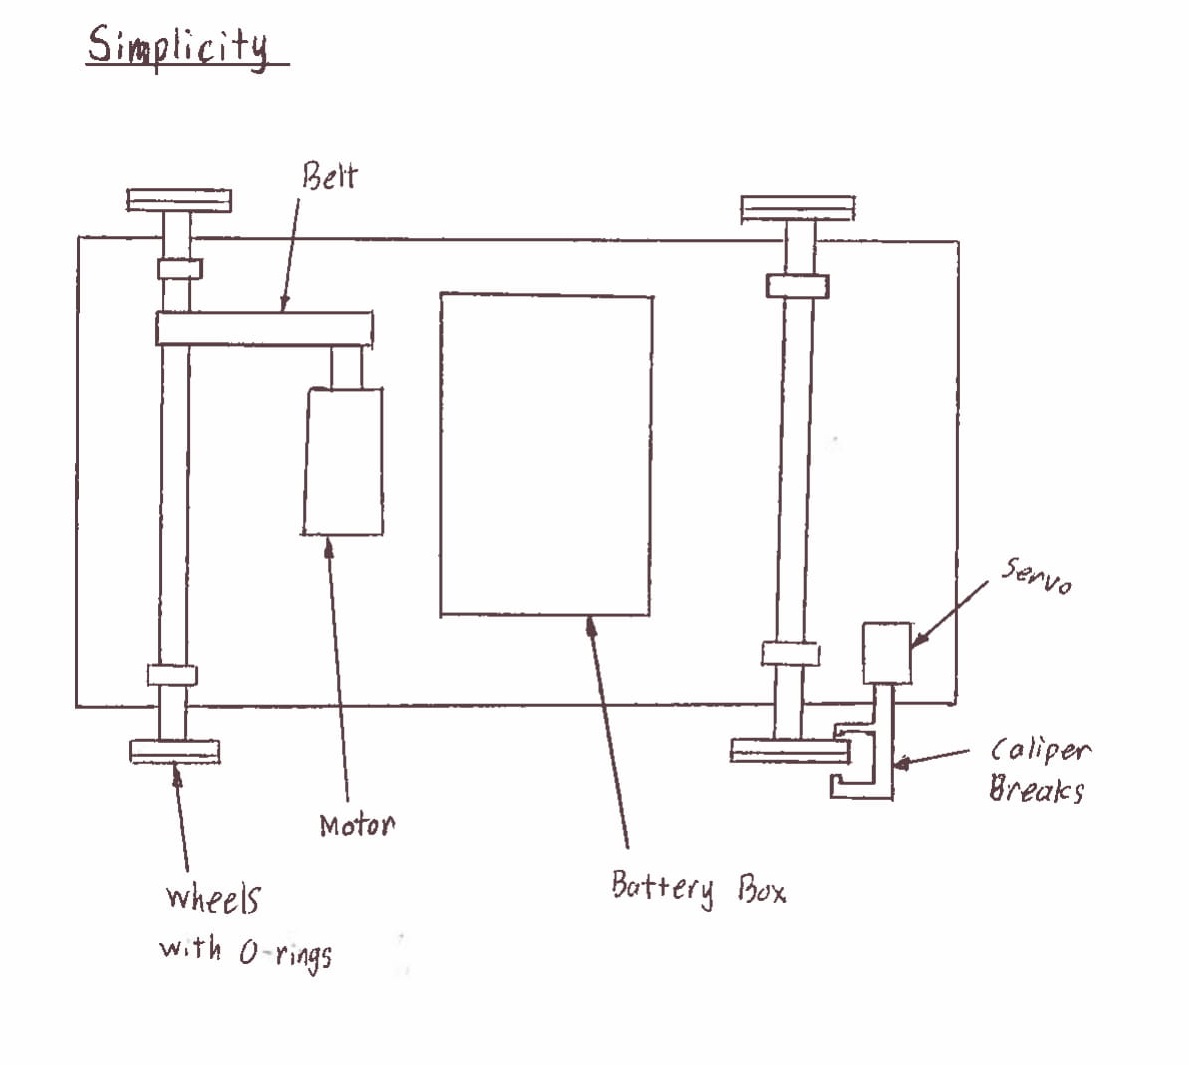 Simplicity
Belt
Servo
Caliper
Breaks
Motor
Battery Box
wheels
with O-rings